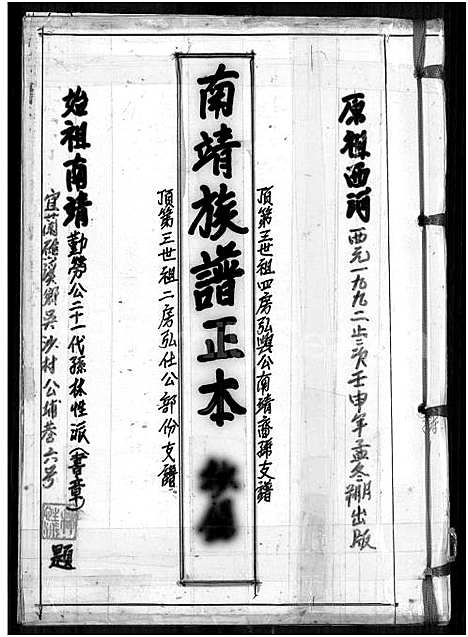 原祖西河
西元一九九二止三次壬申年孟冬朔月出版
頂第三世祖四房弘興公南靖裔孫支譜
南靖族譜正本
頂第三世祖二房弘仕公部份支譜
始祖南靖勤勞公二十一代孫林性派(書章)
宜蘭礁溪鄉吳沙村公埔巷六号
題